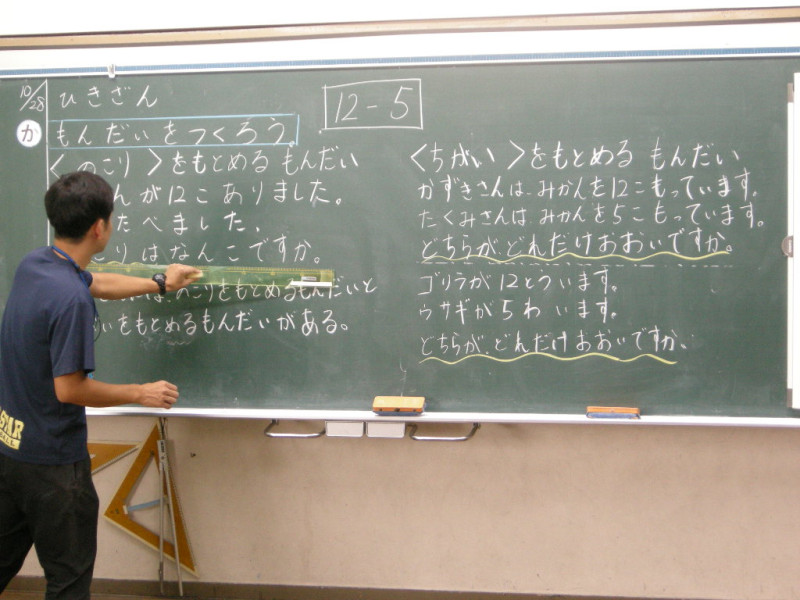 10/28
ひきざん
12-5
か
もんだいをつくろう。
〈のこり〉をもとめるもんだい
んが12こありました。
たべました。
こりはなんこですか。
は、のこりをもとめるもんだいと
いをもとめるもんだいがある。
〈ちがい〉をもとめるもんだい
かずきさんは、みかんを12こもっています。
たくみさんは、みかんを5こもっています。
どちらが、どんだけおおいですか。
ゴリラが12とういます。
ウサギが5わいます。
どちらが、どんだけおおいですか。